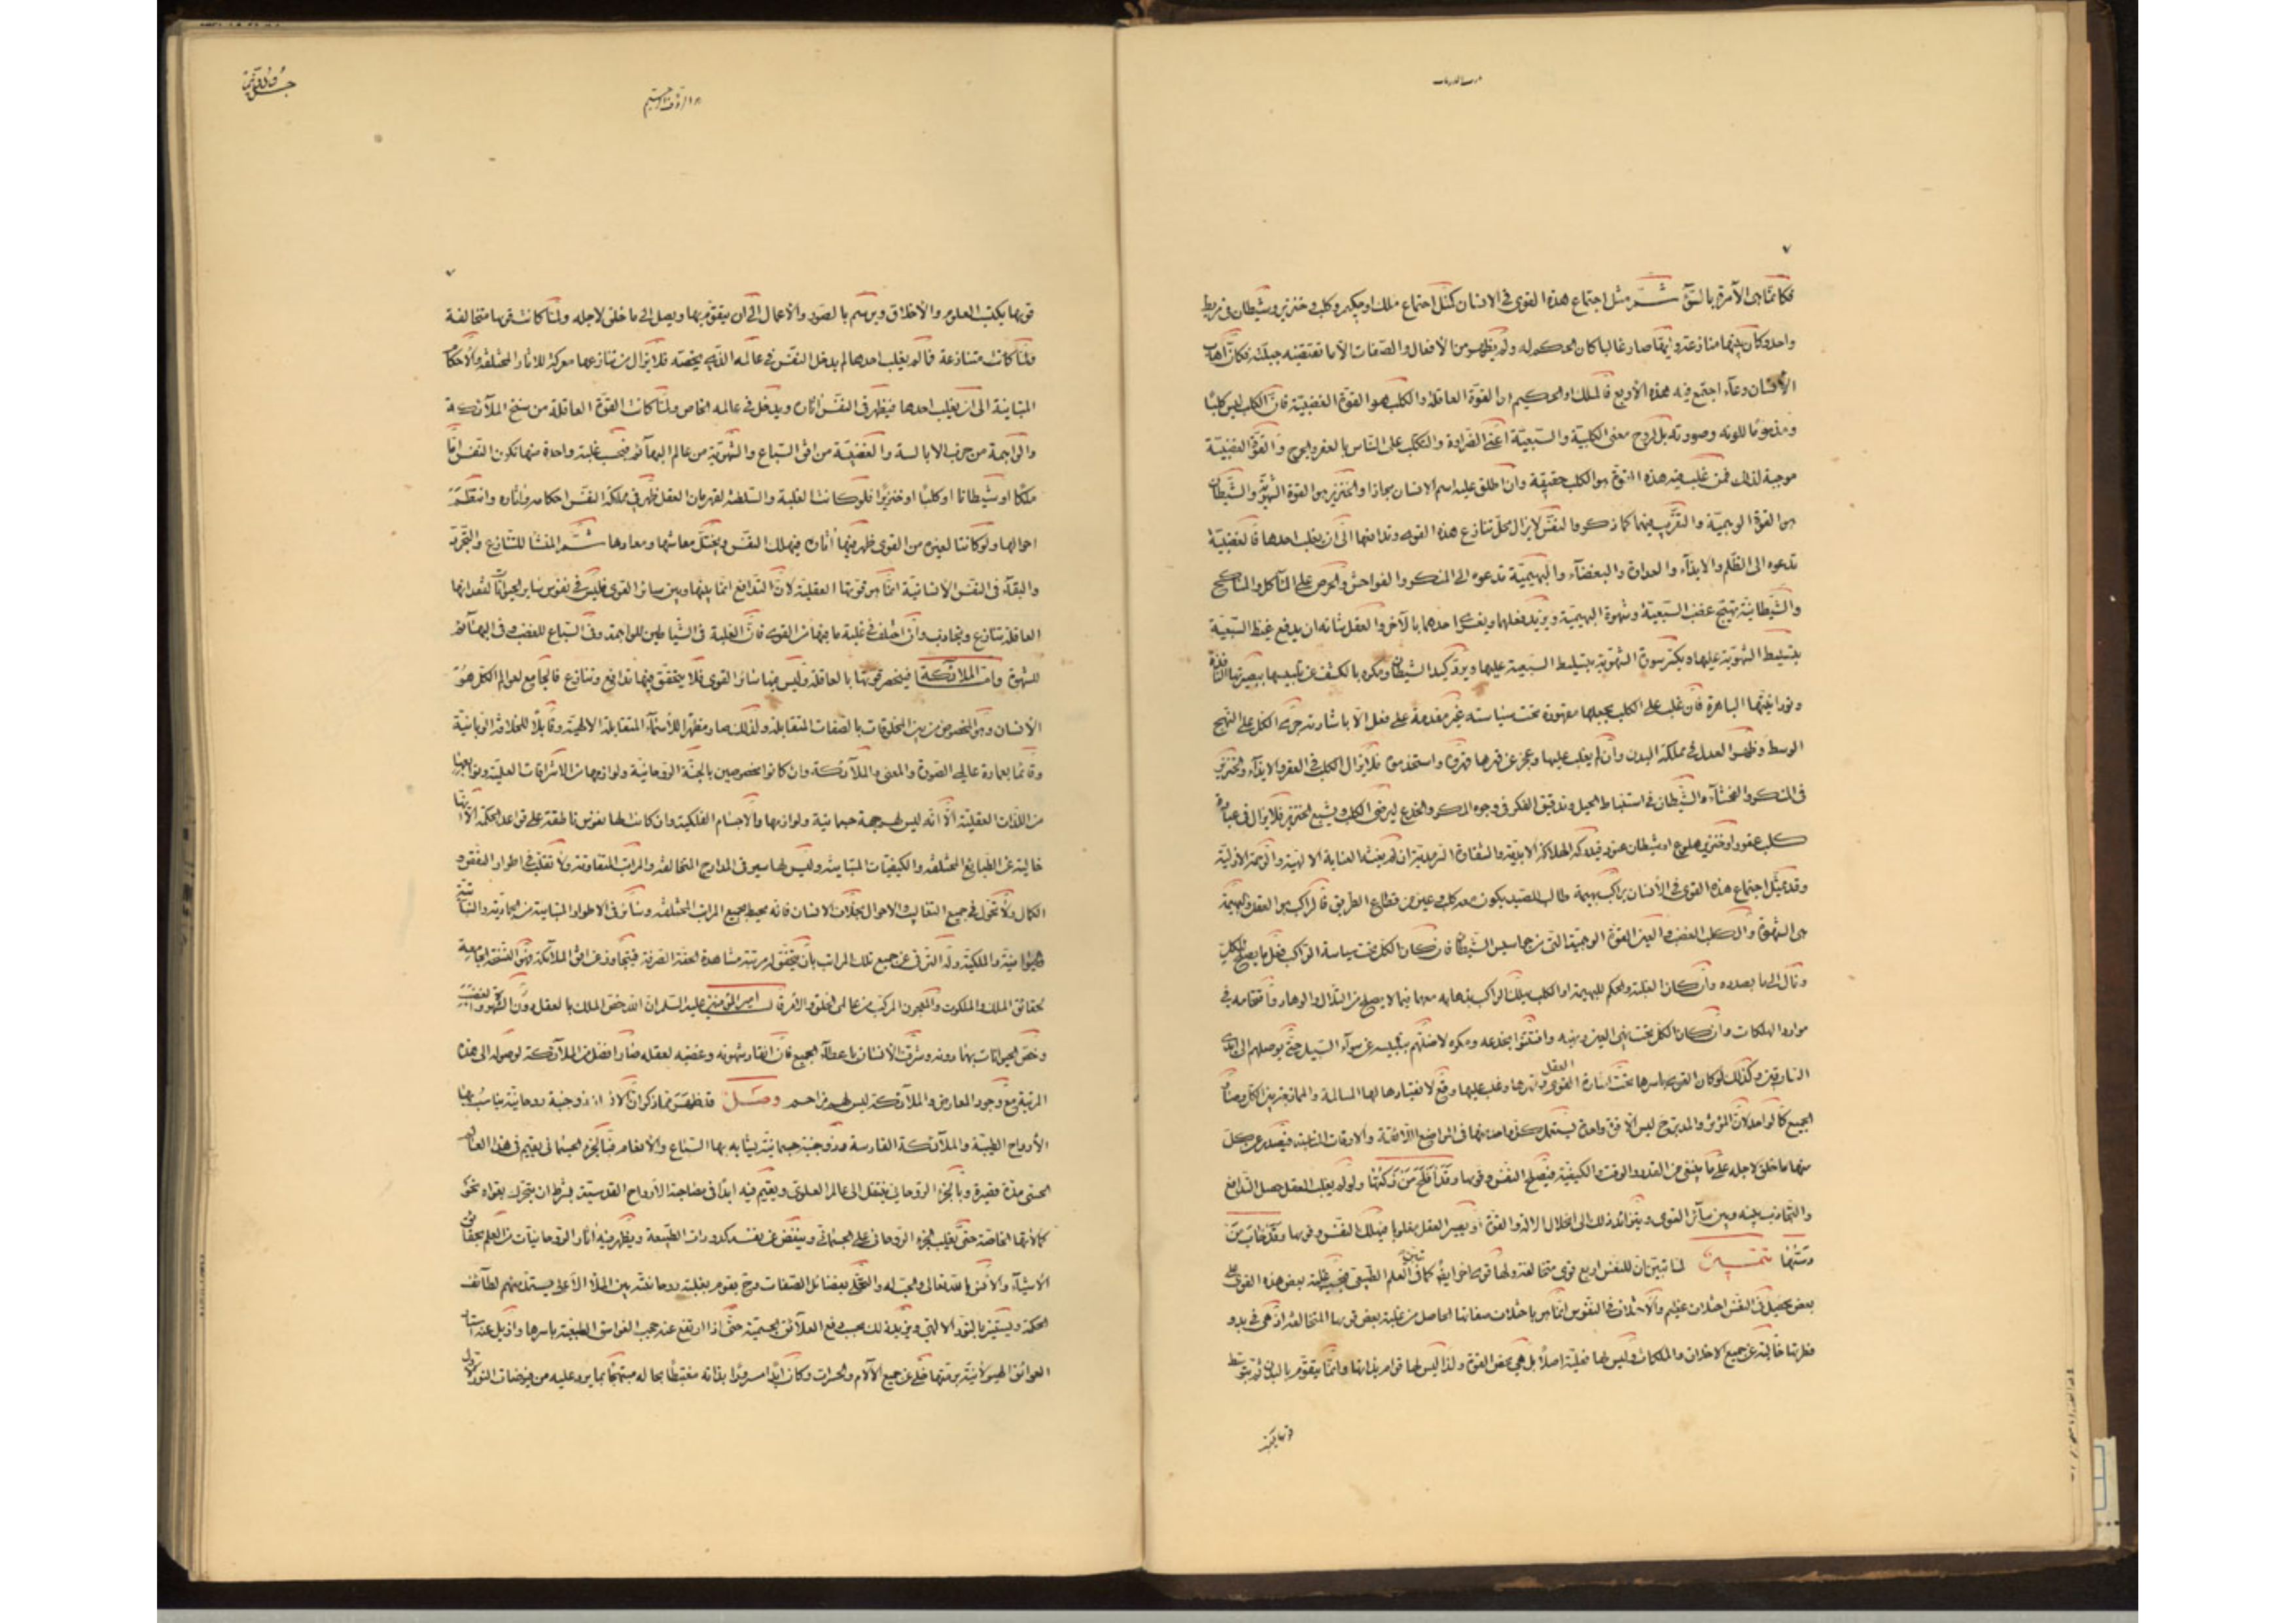 فكانها هى الآمرة بالسوء ثم مثل اجتماع هذه القوى فى الانسان كمثل اجتماع ملك او حكيم وكلب وخنزير وشيطان فى مربط
واحد وكان بينها منازعة وايها صار غالبا كان الحكم له ولم يظهر من الأفعال والصفات الا ما تقتضيه جبلته فكان اهاب
الأنسان وعاء اجتمع فيه هذه الأربع فالملك او الحكيم هو القوة العاقلة والكلب هو القوة الغضبية فان الكلب ليس كلبا
ومذموما للونه وصورته بل لروح معنى الكلبية والسبعية اعنى الضراوة والتكلب على الناس بالعقر والجرح والقوة الغضبية
موجبة لذلك فمن غلب فيه هذه القوة هو الكلب حقيقة وان اطلق عليه اسم الانسان مجازا والخنزير هو القوة الشهوية والشيطان
هو القوة الوهمية والتقريب فيهما كما ذكر والنفس لا يزال محل تنازع هذه القوى وتدافعها الى ان يغلب احدها فالغضبية
تدعوه الى الظلم والايذاء والعداوة والبغضاء والبهيمية تدعوه الى المنكر والفواحش والحرص على المآكل والمناكح
والشيطانية تهيج غضب السبعية وشهوة البهيمية ويزيد فعلهما ويغرى احدهما بالآخر والعقل شانه ان يدفع غيظ السبعية
بتسليط الشهوية عليها ويكسر سورة الشهوية بتسليط السبعية عليها ويرد كيد الشيطان ومكره بالكشف عن تلبيسه ببصيرته النافذة
ونورانيته الباهرة فان غلب على الكل بجعلها مقهورة تحت سياسته غير مقدمة على فعل الا باشارته جرى الكل على المنهج
الوسط وظهر العدل فى مملكة البدن وان لم يغلب عليها وعجز عن قهرها قهروه واستخدموه فلا يزال الكلب فى العقر والايذاء والخنزير
فى المنكر والفحشاء والشيطان فى استنباط الحيل وتدقيق الفكر فى وجوه المكر والخدع ليرضى الكلب ويشبع الخنزير فلا يزال فى عبادة
كلب عقور او خنزير هلوع او شيطان عنود فيدركه الهلاكة الابدية والشقاوة السرمدية ان لم يغثه العناية الالهية والرحمة الازلية
وقد يمثل اجتماع هذه القوى فى الأنسان براكب بهيمة طالب للصيد يكون معه كلب وعين من قطاع الطريق فالراكب هو العقل والبهيمة
هى الشهوة والكلب الغضب والعين القوة الوهمية التى هى من جواسيس الشيطان فان كان الكل تحت سياسة الراكب فعل ما يصلح للكل
ونال الى ما بصدده وان كان الغلبة والحكم للبهيمة او الكلب هلك الراكب بذهابه معهما فيما لا يصلح من التلال والوهاد واقتحامه فى
موارد الهلكات وان كان الكل تحت نهى العين وامره وافتتنوا بخدعه ومكره لاضلهم بتلبيسه عن سواء السبيل حتى يوصلهم الى ايدى
السارقين وكذلك لو كان القوى باسرها تحت اشارة العقل وقهرها وغلب عليها وقع لانقيادها لها المسالمة والممازجة بين الكل وصار
الجميع كالواحد لان المؤثر والمدبر ح ليس الا قوة واحدة يستعمل كل واحدة منها فى المواضع اللائقة والاوقات المناسبة فيصدر عن كل
منها ما خلق لاجله على ما ينبغى من القدر والوقت والكيفية فيصلح النفس وقويها وقد افلح من زكيها ولو لم يغلب العقل حصل التدافع
والتجاذب بينه وبين سائر القوى ويتزايد ذلك الى انحلال الآلة والقوة او يصير العقل مغلوبا فيهلك النفس وقويها وقد خاب من
دسيها تتميم لما تبين ان للنفس اربع قوى متخالفة ولها قوى اخر ايضا كما تبين فى العلم الطبيعى فبحسب غلبة بعض هذه القوى على
بعض يحصل فى النفس اختلاف عظيم والاختلاف فى النفوس انما هو باختلاف صفاتها الحاصل من غلبة بعض قويها المتخالفة اذ هى فى بدو
فطرتها خالية عن جميع الاخلاق والملكات وليس لها فعلية اصلا بل هى محض القوة ولذا ليس لها قوام بذاتها وانما يتقوم بالبدن ثم بتوسط
قويها يكتسب
٧
قويها يكتسب العلوم والأخلاق ويرتسم بالصور والأعمال الى ان يتقوم بها ويصل الى ما خلق لاجله ولما كانت قويها متخالفة
ولما كانت متنازعة فما لم يغلب احدها لم يدخل النفس فى عالمه الذى يخصه فلا يزال من تنازعها معركة للآثار المختلفة والأحكام
المتباينة الى ان يغلب احدها فيظهر فى النفس آثاره ويدخل فى عالمه الخاص ولما كانت القوة العاقلة من سنخ الملائكة
والواهمة من حزب الابالسة والغضبية من افق السباع والشهوية من عالم البهائم فبحسب غلبة واحدة منها تكون النفس اما
ملكا او شيطانا او كلبا او خنزيرا فلو كانت الغلبة والسلطنة لقهرمان العقل ظهر فى مملكة النفس احكامه وآثاره وانتظم
احوالها ولو كانت لغيره من القوى ظهر فيها آثاره فيهلك النفس ويختل معاشها ومعادها ثم المنشا للتنازع والتجرد
والبقاء فى النفس الانسانية انما هو قوتها العقلية لان التدافع انما بينها وبين سائر القوى فليس فى نفوس ساير الحيوانات لفقدانها
العاقلة تنازع وتجاذب وان اختلف فى غلبة ما فيها من القوى فان الغلبة فى الشياطين للواهمة وفى السباع للغضب وفى البهائم
للشهوة واما الملائكة فينحصر قوتها بالعاقلة وليس فيها سائر القوى فلا يتحقق فيها تدافع وتنازع فالجامع لعوالم الكل هو
الأنسان وهو المخصوص من بين المخلوقات بالصفات المتقابلة ولذلك صار مظهرا للأسماء المتقابلة الالهية وقابلا للخلافة الربانية
وقائما بعمارة عالمى الصورة والمعنى والملائكة وان كانوا مخصوصين بالجنة الروحانية ولوازمها من الاشراقات العلمية وتوابعها
من اللذات العقلية الا انه ليس لهم جهة جسمانية ولوازمها والأجسام الفلكية وان كانت لها نفوس ناطقة على قواعد الحكمة الا انها
خالية عن الطبايع المختلفة والكيفيات المتباينة وليس لها سير فى المدارج المتخالفة والمراتب المتفاوتة ولا تقلب فى اطوار النقص و
الكمال ولا تحول فى جميع التقاليب والاحوال بخلاف الانسان فانه محيط بجميع المراتب المختلفة وسائر فى الاطوار المتباينة من الجمادية والنباتية
والحيوانية والملكية وله الترقى عن جميع تلك المراتب بان يتحقق له مرتبة مشاهدة الحقة الصرفة فيتجاوز عن افق الملائكة فهو النسخة الجامعة
لحقائق الملك والملكوت والمعجون المركب من عالمى الخلق والامر قال امير المؤمنين عليه السلام ان الله خص الملك بالعقل دون الشهوة والغضب
وخص الحيوانات بهما دونه وشرف الأنسان باعطاء الجميع فان انقاد شهوته وغضبه لعقله صار افضل من الملائكة لوصوله الى هذه
المرتبة مع وجود المعارض والملائكة ليس لهم مزاحم وصل قد ظهر مما ذكر ان للانسان ذو جنبة روحانية يناسب بها
الأرواح الطيبة والملائكة القادسة وذو جنبة جسمانية يشابه بها السباع والأنعام فبالجزء الجسمانى يقيم فى هذا العالم
الحسى مدة قصيرة وبالجزء الروحانى ينتقل الى عالم العلوى ويقيم فيه ابدا فى مصاحبة الأرواح القدسية بشرط ان يتحرك بقواه نحو
كمالاتها الخاصة حتى يغلب الجزء الروحانى على الجسمانى وينفض عن نفسه كدورات الطبيعة ويظهر فيه آثار الروحانيات من العلم بحقائق
الأشياء والأنس بالله تعالى والحب له والتحلى بفضائل الصفات وح يقوم بغلبة روحانيته بين الملأ الأعلى يستمد منهم لطائف
الحكمة ويستنير بالنور الالهى ويزيد ذلك بحسب رفع العلائق الجسمية حتى اذا ارتفع عنه حجب الغواسق الطبيعية باسرها وازيل عنه استار
العوائق الهيولانية برمتها خلى عن جميع الآلام والحسرات وكان ابدا مسرورا بذاته مغتبطا بحاله مبتهجا بما يرد عليه من فيوضات النور الأول